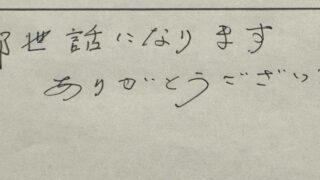 世話になります
ありがとうござい